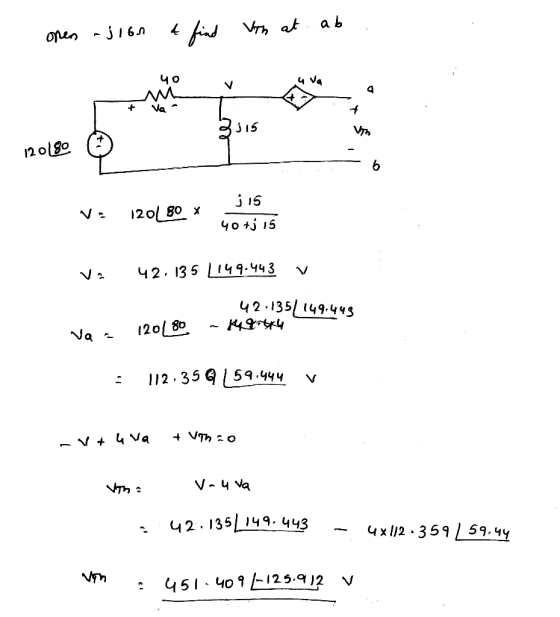 open - j16Ω & find VTh at ab
40
V
4 Va
a
+ Va -
+ -
+
j15
VTh
120∠80
+
-
-
b
V = 120∠80 × j15 / 40 + j 15
V = 42.135 ∠149.443 V
42.135∠149.443
Va = 120∠80 -
= 112.359 ∠59.444 V
- V + 4 Va + VTh = 0
VTh = V - 4 Va
= 42.135∠149.443 - 4x112.359 ∠59.44
VTh = 451.409 ∠-125.912 V